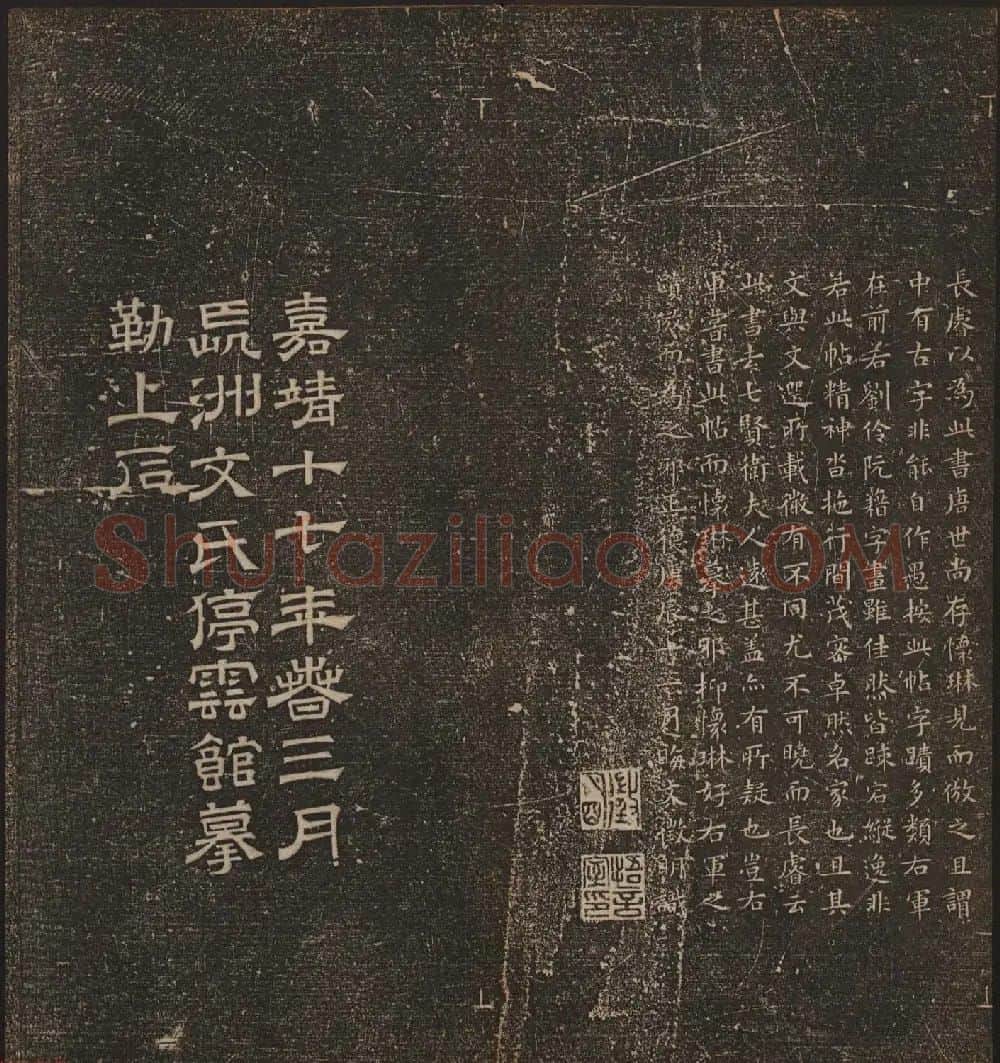 長睿以為此書唐世尚存懷琳見而倣之且謂
中有古字非能自作愚按此帖字蹟多類右軍
在前若劉伶阮籍字畫雖佳然皆疎宕縱逸非
若此帖精神沓拖行間茂密卓然名家也且其
文與文選所載微有不同尤不可曉而長睿云
此書去七賢衛夫人遠甚蓋亦有所疑也豈右
軍嘗書此帖而懷琳摹之耶抑懷琳好右軍之
倣而為之邪正德庚辰月晦文徵明識
悟言室印
嘉靖十七年春三月
長洲文氏停雲館摹
勒上石
Shufaziliao.COM